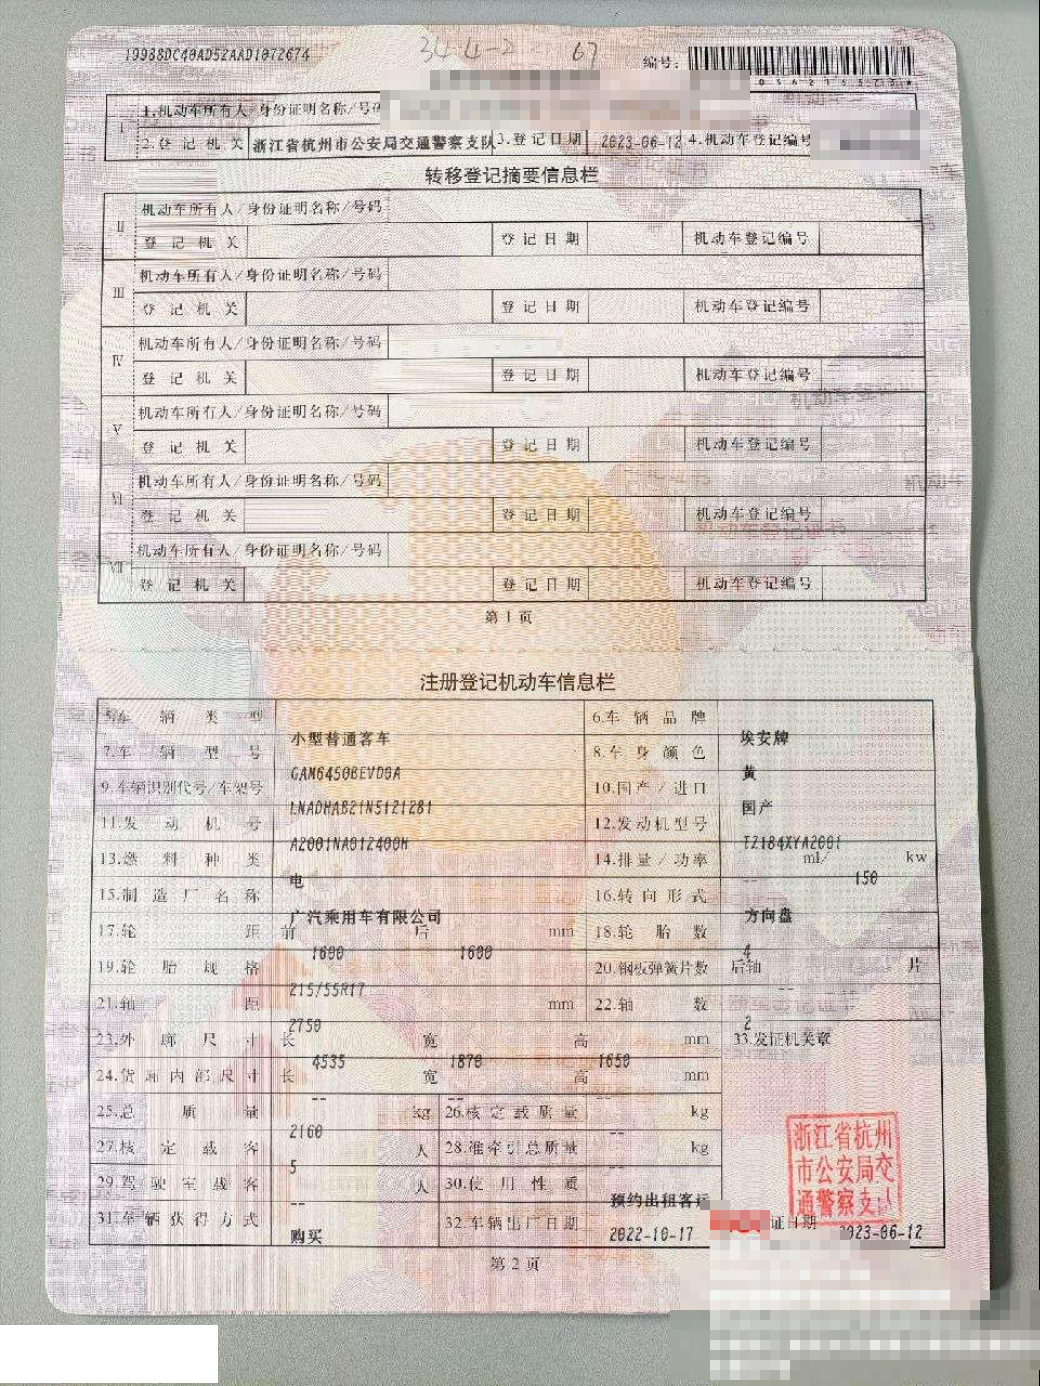 19988DC40AD52AAD1072674
344-2 67
编号:
I 1.机动车所有人/身份证明名称/号码
2.登记机关 浙江省杭州市公安局交通警察支队 3.登记日期 2023-06-12 4.机动车登记编号
转移登记摘要信息栏
II 机动车所有人/身份证明名称/号码
登记机关 登记日期 机动车登记编号
III 机动车所有人/身份证明名称/号码
登记机关 登记日期 机动车登记编号
IV 机动车所有人/身份证明名称/号码
登记机关 登记日期 机动车登记编号
V 机动车所有人/身份证明名称/号码
登记机关 登记日期 机动车登记编号
VI 机动车所有人/身份证明名称/号码
登记机关 登记日期 机动车登记编号
VII 机动车所有人/身份证明名称/号码
登记机关 登记日期 机动车登记编号
第1页
注册登记机动车信息栏
5.车辆类型 小型普通客车 6.车辆品牌 埃安牌
7.车辆型号 GAM6450BEVD0A 8.车身颜色 黄
9.车辆识别代号/车架号 LNADHAB21N5121281 10.国产/进口 国产
11.发动机号 A2001NA012400H 12.发动机型号 TZ184XYA2001
13.燃料种类 电 14.排量/功率 -- ml/ 150 kw
15.制造厂名称 广汽乘用车有限公司 16.转向形式 方向盘
17.轮距 前 1600 后 1600 mm 18.轮胎数 4
19.轮胎规格 215/55R17 20.钢板弹簧片数 后轴 -- 片
21.轴距 2750 mm 22.轴数 2
23.外廓尺寸 长 4535 宽 1870 高 1650 mm 33.发证机关章
24.货厢内部尺寸 长 -- 宽 -- 高 -- mm
25.总质量 2160 kg 26.核定载质量 -- kg
27.核定载客 5 人 28.准牵引总质量 -- kg
29.驾驶室载客 -- 人 30.使用性质 预约出租客运
31.车辆获得方式 购买 32.车辆出厂日期 2022-10-17 证日期 2023-06-12
浙江省杭州
市公安局交
通警察支队
第2页